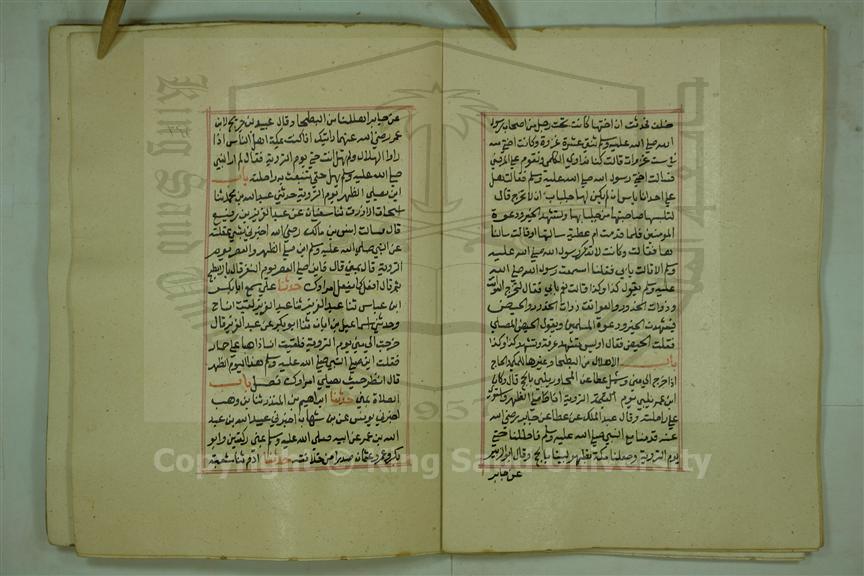 خلف فحدثت ان اختها كانت تحت رجل من اصحاب رسول
الله صلى الله عليه وسلم ثنتى عشرة غزوة وكانت اختى معه
فى ست غزوات قالت كنا نداوى الكلمى ونقوم على المرضى
فسالت اختى رسول الله صلى الله عليه وسلم فقالت هل
على احدانا باس ان لم يكن لها جلباب ان لا تخرج قال
لتلبسها صاحبتها من جلبابها ولتشهد الخير ودعوة
المومنين فلما قدمت ام عطية سالتها او قالت سالنا
ها فقالت وكانت لا تذكر رسول الله صلى الله عليه
وسلم الا قالت بابى فقلنا اسمعت رسول الله صلى الله
عليه وسلم يقول كذا وكذا قالت نعم بابى فقال لتخرج العواتق
وذوات الخدور او العواتق ذوات الخدور والحيض
فيشهدن الخير ودعوة المسلمين ويعتزل الحيض المصلى
فقلت الحيض فقال اوليس تشهد عرفة وتشهد كذا وكذا
باب الاهلال من البطحا وغيرها للمكى والحاج
اذا خرج الى منى وسئل عطا عن المجاور يلبى بالحج قال وكان
ابن عمر يلبى يوم التروية اذا صلى الظهر واستوى
على راحلته وقال عبد الملك عن عطا عن جابر رضى الله
عنه قدمنا مع النبى صلى الله عليه وسلم فاحللنا حتى
يوم التروية وجعلنا مكة بظهر لبينا بالحج وقال ابو الزبير
عن جابر
عن جابر اهللنا من البطحا وقال عبيد بن جريج لابن
عمر رضى الله عنهما رايتك اذا كنت بمكة اهل الناس اذا
راوا الهلال ولم تهل انت حتى يوم التروية فقال لم ار النبى
صلى الله عليه وسلم يهل حتى تنبعث به راحلته باب
اين يصلى الظهر يوم التروية حدثنى عبد الله بن محمد ثنا
اسحاق الازرق ثنا سفيان عن عبد العزيز بن رفيع
قال سالت انس بن مالك رضى الله اخبرنى بشى عقلته
عن النبى صلى الله عليه وسلم اين صلى الظهر والعصر يوم
التروية قال بمنى قال فاين صلى العصر يوم النفر قال بالابطح
ثم قال افعل كما يفعل امراوك حدثنا على سمع ابا بكر
ابن عياش ثنا عبد العزيز ثنا عبد العزيز لقيت انسا ح
وحدثنى اسماعيل بن ابان ثنا ابو بكر عن عبد العزيز قال
خرجت الى منى يوم التروية فلقيت انسا ذاهبا على حمار
فقلت اين صلى النبى صلى الله عليه وسلم هذا اليوم الظهر
قال انظر حيث يصلى امراوك فصل باب
الصلاة بمنى حدثنا ابراهيم بن المنذر ثنا بن وهب
اخبرنى يونس عن بن شهاب اخبرنى عبيد الله بن عبد
الله بن عمر عن ابيه صلى الله عليه وسلم بمنى ركعتين وابو
بكر وعمر وعثمان صدرا من خلافته حدثنا ادم ثنا شعبة
King Saud University
1957
Copyright © King Saud University